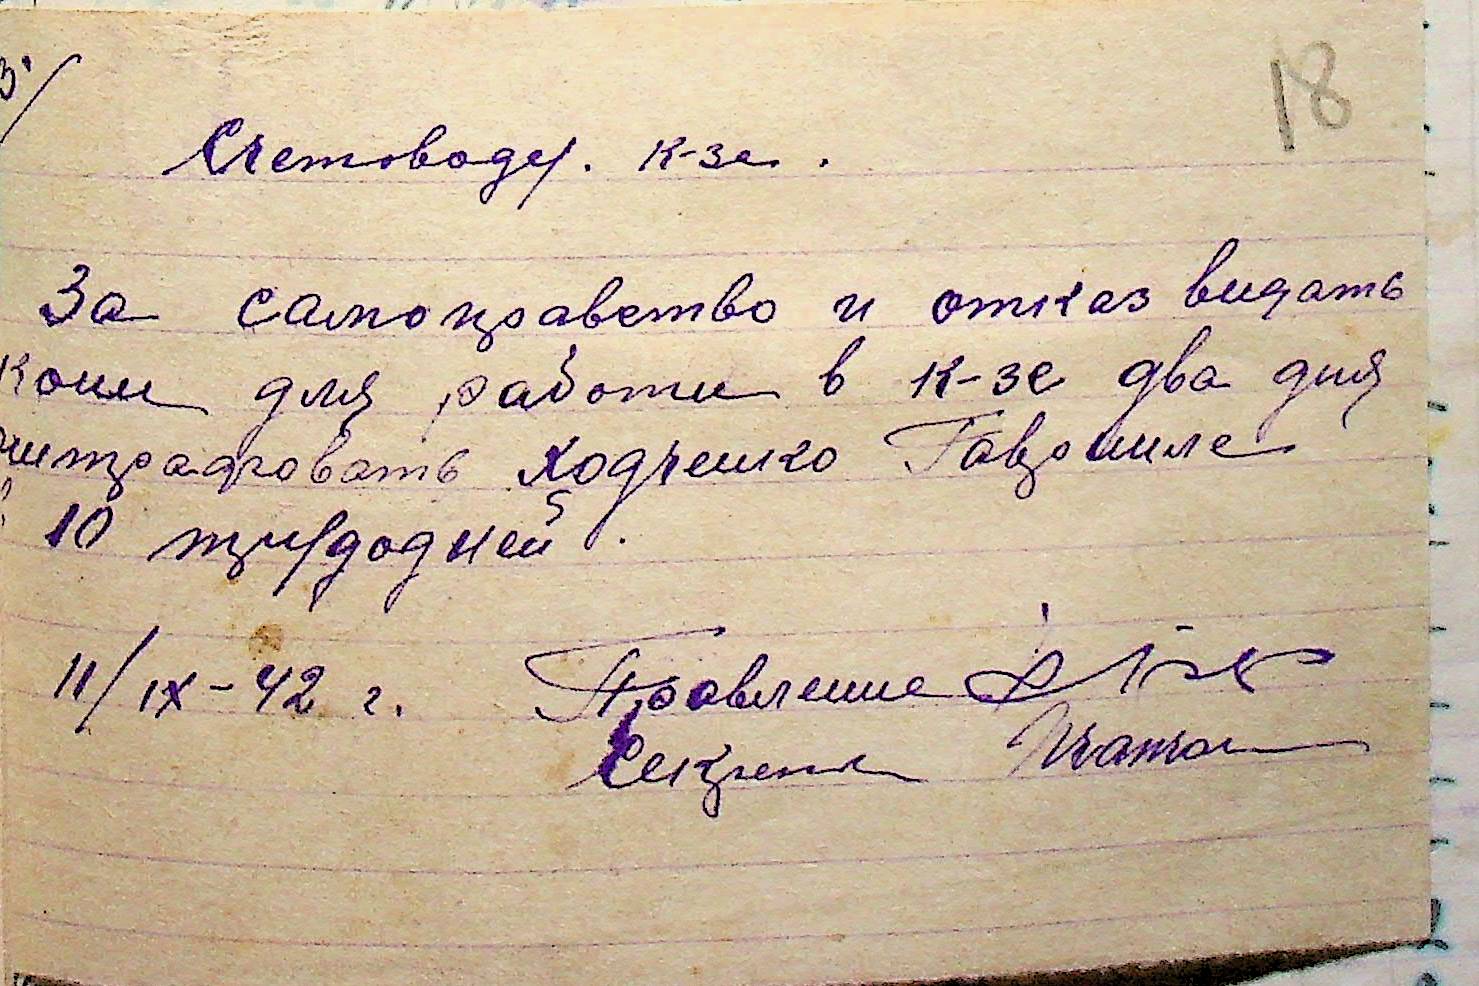 18
3/
Счетоводу. к-за.
За самоправство и отказ видать
кони для работи в к-зе два дня
оштрафовать Ходченко Гавриила
в 10 трудодней.
11/IX-42 г. Правление
Секрет